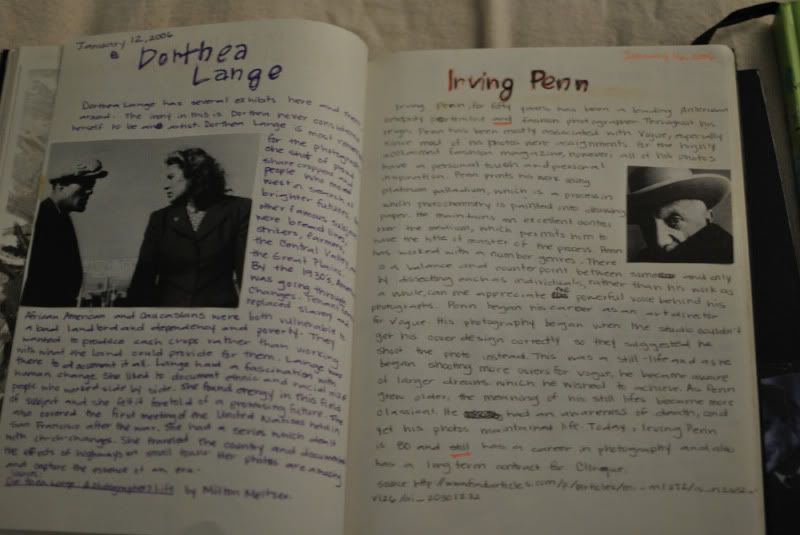 January 12, 2006
Dorthea
Lange
Dorthea Lange has several exhibits here and there
around. The irony in this is Dorthea never considered
herself to be an artist. Dorthea Lange is most
for the photographs
she shot of
share croppers and
people who moved
west in search of
brighter futures.
other famous subjects
were bread lines,
strikers, farmers,
the Central Valley and
the Great Plains.
By the 1930's,
was going through
changes. Tenant
replaced slavery and
African American and Caucasians were both vulnerable to
a bad landlord and dependency and poverty. They
wanted to produce cash crops rather than working
with what the land could provide for them. Lange was
there to document it all. Lange had a fascination with
human change. She liked to document ethnic and racial mixes
people who worked side by side. She found energy in this field
of subject and she felt it foretold of a promising future. She
also covered the first meeting of the United Nations held in
San Francisco after the war. She had a series which dealt
with ch-ch-changes. She traveled the country and documented
the effects of highways on small towns. Her photos are amazing
and capture the essence of an era.
Dorthea Lange: A Photographer's Life by Milton Meltzer.
January 12, 2006
Irving Penn
Irving Penn, for fifty years has been a leading American
celebrity portraitist and fashion photographer. Throughout his
reign, Penn has been mostly associated with Vogue, especially
since most of his photos were assignments for the highly
acclaimed fashion magazine, however, all of his photos
have a personal touch and personal
inspiration. Penn prints his work using
platinum palladium, which is a process in
which photochemistry is painted into drawing
paper. He maintains an excellent control
over the medium, which permits him to
have the title of master of the process. Penn
has worked with a number genres. There
is a balance and counterpoint between some and only
by dissecting each as individuals, rather than his work as
a whole, can me appreciate the powerful voice behind his
photographs. Penn began his career as an art director
for Vogue. His photography began when the studio couldn't
get his cover design correctly so they suggested he
shoot the photo instead. This was a still-life and as he
began shooting more covers for Vogue, he became aware
of larger dreams which he wished to achieve. As Penn
grew older, the meaning of his still lifes became more
classical. He had an awareness of death, and
yet his photos maintained life. Today, Irving Penn
is 80 and still has a career in photography and also
has a long term contract for Clinique.
source: http://www.findarticles.com/p/articles/mi_m1285/is_n2652_